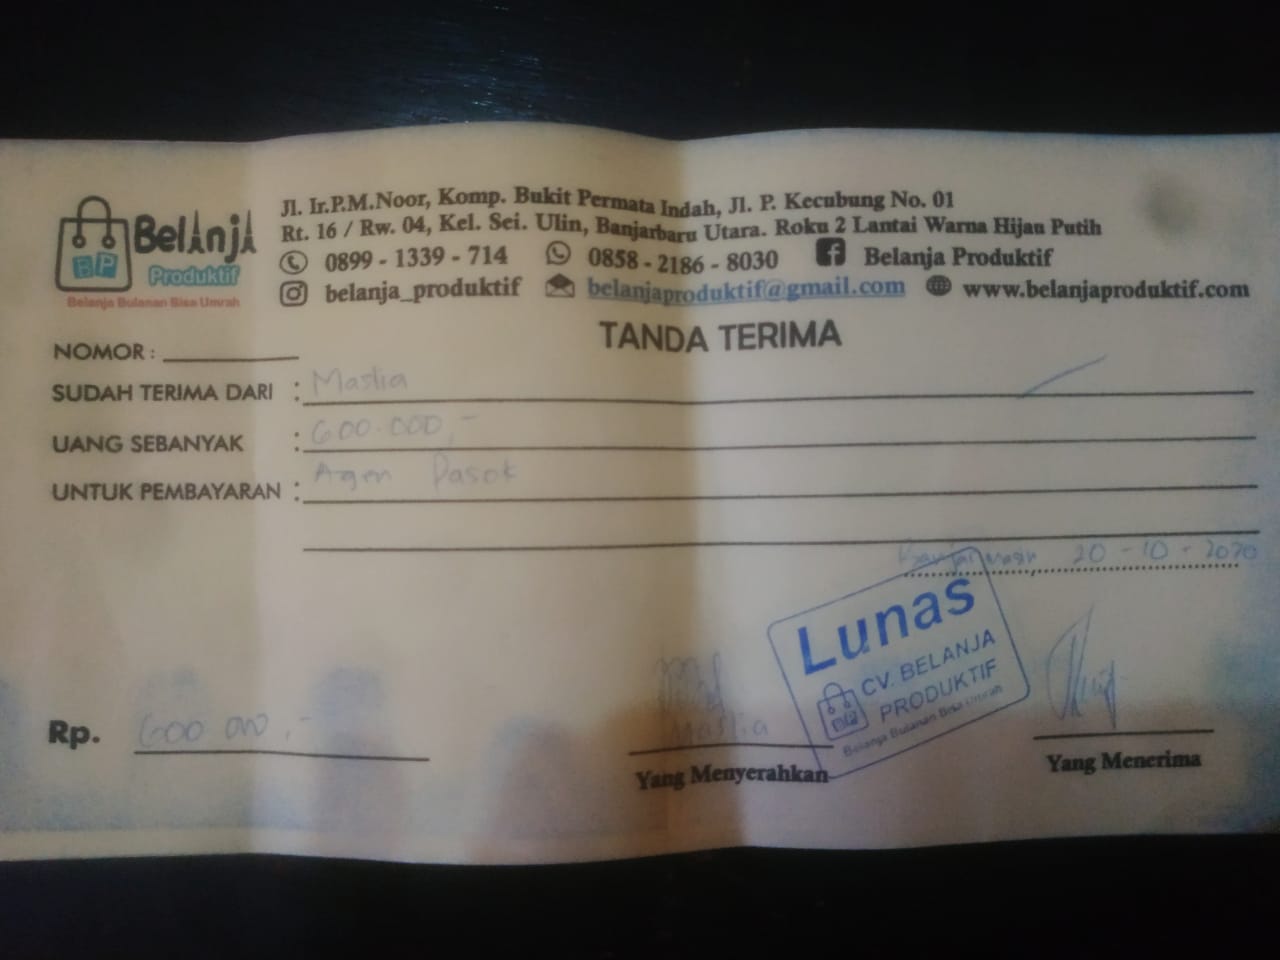 Belanja
BP
Produktif
Belanja Bulanan Bisa Umrah
Jl. Ir.P.M.Noor, Komp. Bukit Permata Indah, Jl. P. Kecubung No. 01
Rt. 16 / Rw. 04, Kel. Sei. Ulin, Banjarbaru Utara. Roku 2 Lantai Warna Hijau Putih
0899 - 1339 - 714 0858 - 2186 - 8030 Belanja Produktif
belanja_produktif belanjaproduktif@gmail.com www.belanjaproduktif.com
TANDA TERIMA
NOMOR :
SUDAH TERIMA DARI : Maslia
UANG SEBANYAK : 600.000,-
UNTUK PEMBAYARAN : Agen Pasok
Banjarmasin, 20 - 10 - 2020
Lunas
CV. BELANJA
PRODUKTIF
BP
Belanja Bulanan Bisa Umrah
Rp. 600 000,-
Maslia
Yang Menyerahkan
Yang Menerima